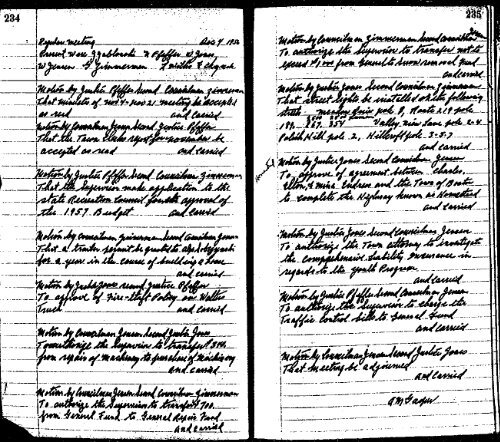 234
Regular meeting Dec 4 1956
Present were
Motion by Justice Pfeffer second Councilman Zimmerman
That minutes of Nov 4 - Nov 21 meeting be accepted
as read and carried
Motion by Councilman Jensen second Justice Pfeffer
That the Town Clerks report for November be
accepted as read and carried
Motion by Justice Pfeffer second Councilman Zimmerman
That the Supervisor make application to the
State Recreation Council for the approval of
the 1957 Budget and carried
Motion by Councilman Zimmerman second Councilman Jensen
That a trailer permit be granted to
for a year in the course of building a home
and carried
Motion by Justice Jones second Justice Pfeffer
To approve of Fire-theft Policy on Walter
Truck and carried
Motion by Councilman Jensen second Justice Jones
To authorize the Supervisor to transfer
from repairs of Machinery to purchase of Machinery
and carried
Motion by Councilman Jensen second Councilman Zimmerman
To authorize the Supervisor to transfer 700.
from General Fund to General Repair Fund
and carried
235
Motion by Councilman Zimmerman second Councilman
To authorize the Supervisor to transfer not to
exceed from General to snow removal fund
and carried
Motion by Justice Jones second Councilman Zimmerman
That street lights be installed on the following
streets pole 8, Route 219 pole
189 Valley View Lane pole 2-4
Polish Hill pole 2, Hillcroft pole 3-5-7
and carried
Motion by Justice Jones second Councilman Jensen
To approve of agreement between Charles,
and the Town of Boston
to complete the Highway known as Homestead
and carried
Motion by Justice Jones second Councilman Jensen
To authorize the Town Attorney to investigate
the comprehensive liability insurance in
regards to the youth Program
and carried
Motion by Justice Pfeffer second Councilman Jensen
To authorize the Supervisor to charge the
Traffic control bills to General Fund
and carried
Motion by Councilman Jensen second Justice Jones
That meeting be adjourned
and carried